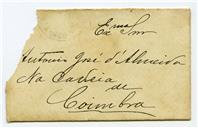 Exmo Snr
Antonio José d'Almeida
Na Cadeia
de
Coimbra